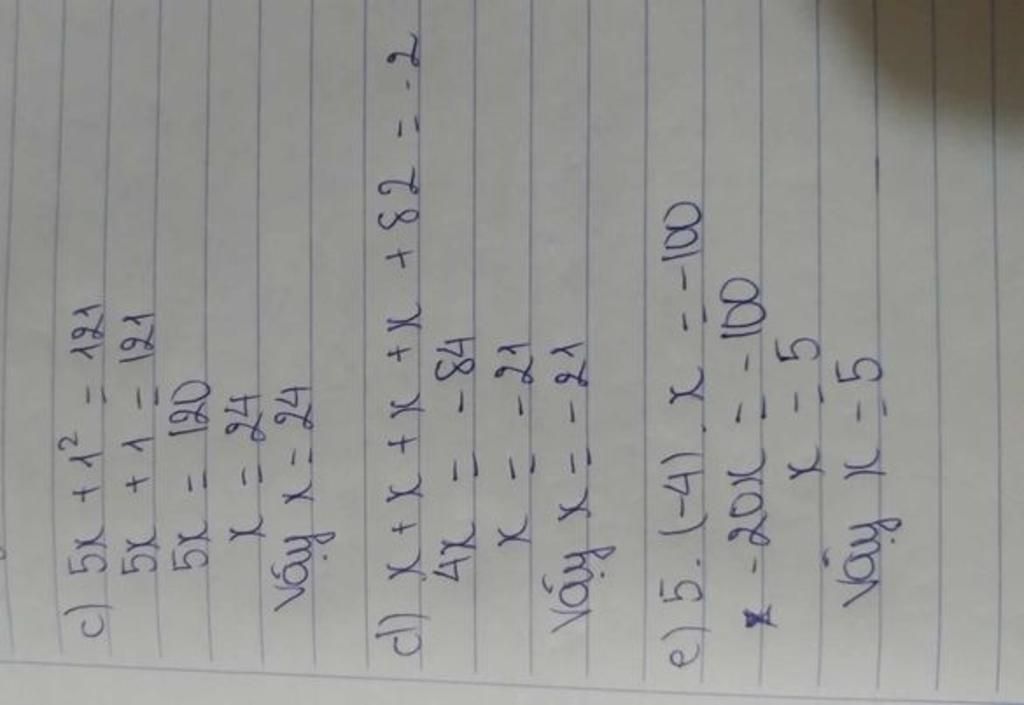 c) 5x + 1² = 121
5x + 1 = 121
5x = 120
x = 24
Vậy x = 24
d) x + x + x + x + 82 = -2
4x = -84
x = -21
Vậy x = -21
e) 5. (-4) . x = -100
-20x = -100
x = 5
Vậy x = 5